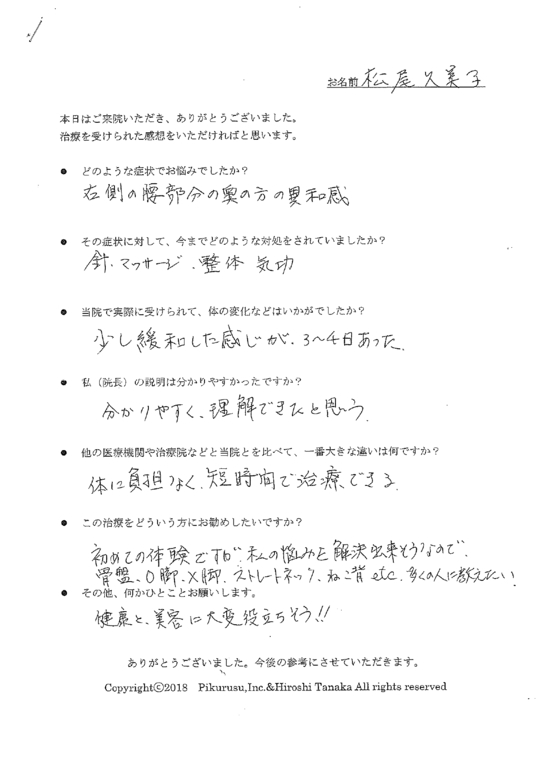 お名前 松尾久美子
本日はご来院いただき、ありがとうございました。
治療を受けられた感想をいただければと思います。
● どのような症状でお悩みでしたか？
右側の腰部分の奥の方の異和感
● その症状に対して、今までどのような対処をされていましたか？
針.マッサージ.整体 気功
● 当院で実際に受けられて、体の変化などはいかがでしたか？
少し緩和した感じが、3〜4日あった.
● 私（院長）の説明は分かりやすかったですか？
分かりやすく、理解できたと思う.
● 他の医療機関や治療院などと当院とを比べて、一番大きな違いは何ですか？
体に負担なく、短時間で治療できる.
● この治療をどういう方にお勧めしたいですか？
初めての体験ですが、私の悩みを解決出来そうなので.
骨盤、O脚、X脚、ストレートネック、ねこ背 etc. 多くの人に教えたい
● その他、何かひとことお願いします。
健康と、美容に大変役立ちそう!!
ありがとうございました。今後の参考にさせていただきます。
Copyrightⓒ2018 Pikurusu,Inc.&Hiroshi Tanaka All rights reserved